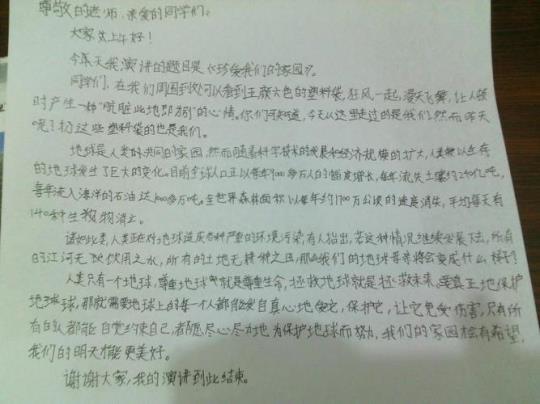 尊敬的老师、亲爱的同学们:
大家上午好!
今天我演讲的题目是《珍爱我们的家园》。
同学们,在我们周围到处可以看到五颜六色的塑料袋,狂风一起,漫天飞舞,让人顿
时产生一种"肮脏此地即别"的心情。你们可知道,今天从这里走过的是我们,然而昨天
呢?扔这些塑料袋的也是我们。
地球是人类的共同的家园,然而随着科学技术的发展和经济规模的扩大,人类赖以生存
的地球发生了巨大的变化。目前全球人口正以每年900多万人的幅度增长,每年流失土壤约240亿吨,
每年流入海洋的石油达1000多万吨。全世界森林面积以每年约1700万公顷的速度消失,平均每天有
140种生物消亡。
诸如此类,人类正在对地球造成各种严重的环境污染,有人指出,若这种情况继续发展下去,所有
的江河无可饮用之水,所有的土地无耕种之日,那么我们的地球等者将会变成什么样子?
人类只有一个地球,尊重地球就是尊重生命,拯救地球就是拯救未来,要真正地保护
地球,那就需要地球上的每一个人都能发自真心地爱它,保护它,让它免受伤害,只有所
有的人都能自觉约束自己,者愿尽心尽力地为保护地球而努力,我们的家园松有希望,
我们的明天才能更美好。
谢谢大家,我的演讲到此结束。